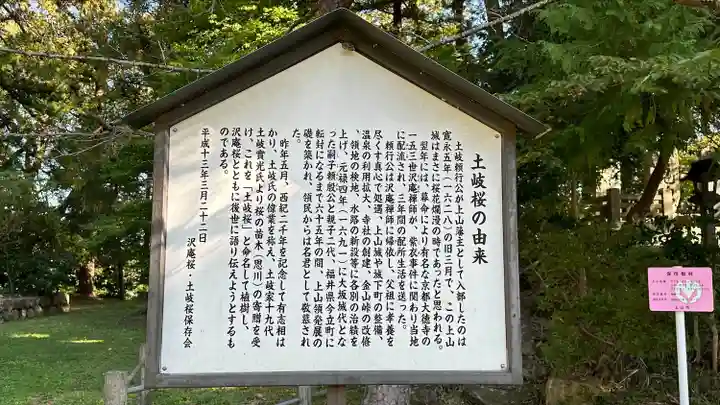 土岐桜の由来
土岐頼行公が上山藩主として入部したのは
寛永五年(一六二八)の旧三月で、この上山
城はまさに桜花爛漫の時であったと思われる。
翌年には、幕命により有名な京都大徳寺の
一五三世沢庵禅師が、紫衣事件に関わり当地
に配流され、三年間の配所生活を送った。
頼行公は沢庵禅師に帰依し、父祖に孝養を
尽くす真心で処遇、上山城や城下町の整備、
温泉の利用拡大、寺社の創建、金山峠の改修
、領地の検地、水路の新設等に各別の治績を
上げ、元禄四年(一六九一)に大坂城代とな
った嗣子頼殷公と親子二代、福井県今立町に
転封になるまで六十五年の間、上山領発展の
礎を築かれ、領民からは名君として敬慕され
た。
昨年五月、西紀二千年を記念して有志相は
かり、土岐氏の偉業を称え、土岐家十九代
土岐實光氏より桜の苗木(思川)の寄贈を受
け、これを「土岐桜」と命名して植樹し、
沢庵桜とともに後世に語り伝えようとするも
のである。
平成十三年三月二十二日
沢庵桜・土岐桜保存会
上山市